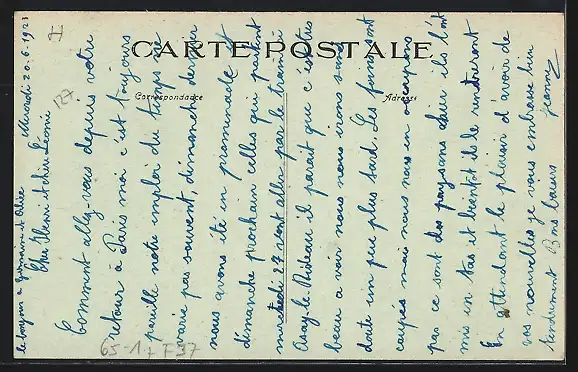 CARTE POSTALE
Correspondance
Adresse
Mercredi 20.6.1923
Cher Henri et chère Léonie
Comment allez-vous depuis votre
retour à Paris moi c'est toujours
pareille notre emploi du temps ne
varie pas souvent, dimanche dernier
nous avons été en promenade et
dimanche prochain celles qui partent
mercredi 27 vont aller par le train à
Asay-le-Rideau il parait que c'est très
beau a voir nous nous irons sans
doute un peu plus tard. Les foins sont
coupés mais nous nous en occupons
pas ce sont des paysans d'eux ils l'ont
mis en tas et bientôt ils le rentreront
En attendant le plaisir d'avoir de
vos nouvelles je vous embrasse bien
tendrement Bons baisers Jeanne
le bonjour à Germain et Alice
127
65-1 7 F37